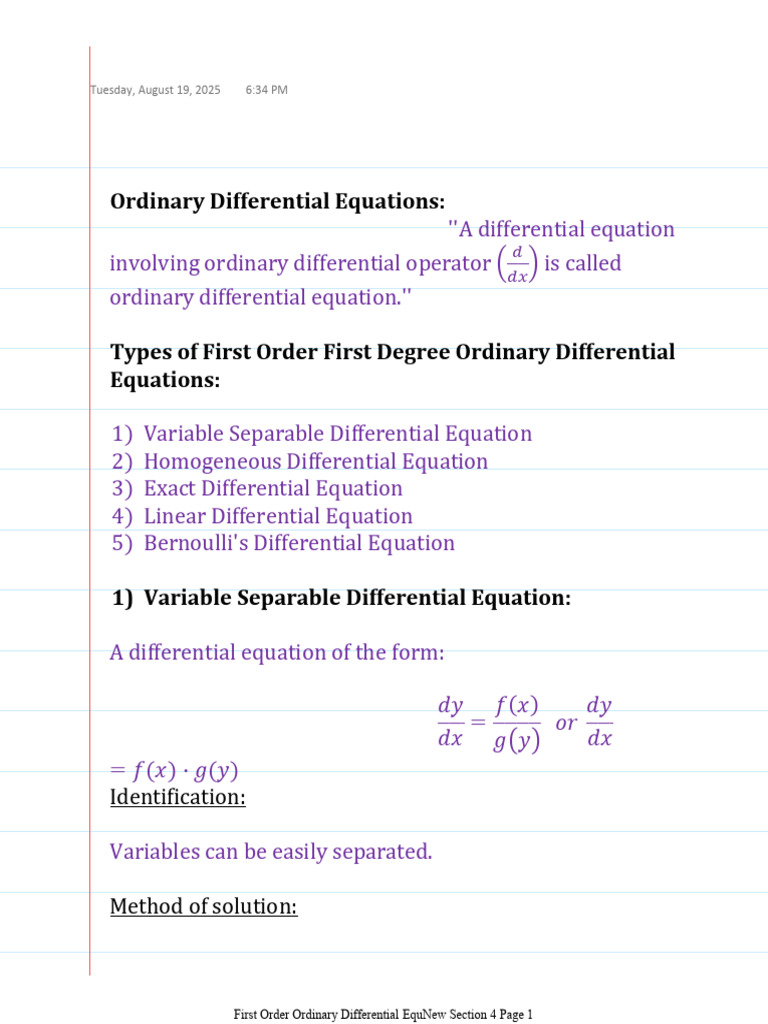 Tuesday, August 19, 2025 6:34 PM
Ordinary Differential Equations:
''A differential equation
involving ordinary differential operator (d/dx) is called
ordinary differential equation.''
Types of First Order First Degree Ordinary Differential
Equations:
1) Variable Separable Differential Equation
2) Homogeneous Differential Equation
3) Exact Differential Equation
4) Linear Differential Equation
5) Bernoulli's Differential Equation
1) Variable Separable Differential Equation:
A differential equation of the form:
dy/dx = f(x)/g(y) or dy/dx
= f(x) · g(y)
Identification:
Variables can be easily separated.
Method of solution:
First Order Ordinary Differential EquNew Section 4 Page 1